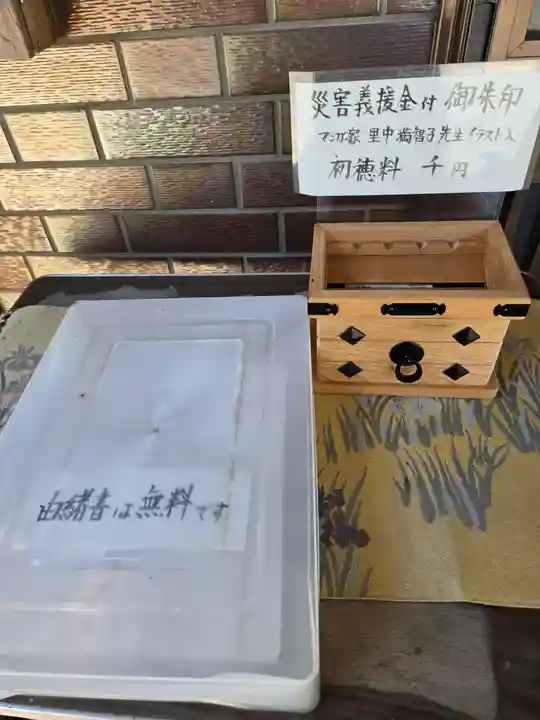 災害義援金付 御朱印
マンガ家 里中満智子先生イラスト入
初穂料 千円
由緒書は無料です